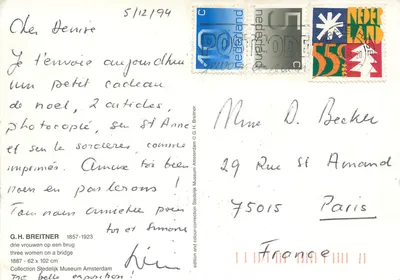 5/12/94
Cher Denise
Je t'envoie aujourdhui
un petit cadeau
de noel, 2 articles,
photocopié, sur St Anne
et sur le sorcières, comme
imprimés.
nous en parlerons!
Tou nous amitiés pour
toi et Simone
G.H. BREITNER 1857-1923
drie vrouwen op een brug
three women on a bridge
1887 - 62 x 102 cm
Collection Stedelijk Museum Amsterdam
très belle exposition!
edition and colour-correction Stedelijk Museum Amsterdam © G. H. Breitner
c
nederland
5 c
nederland
NEDER
LAND
55c
Mme D. Becker
29 Rue St Amand
75015 Paris
France